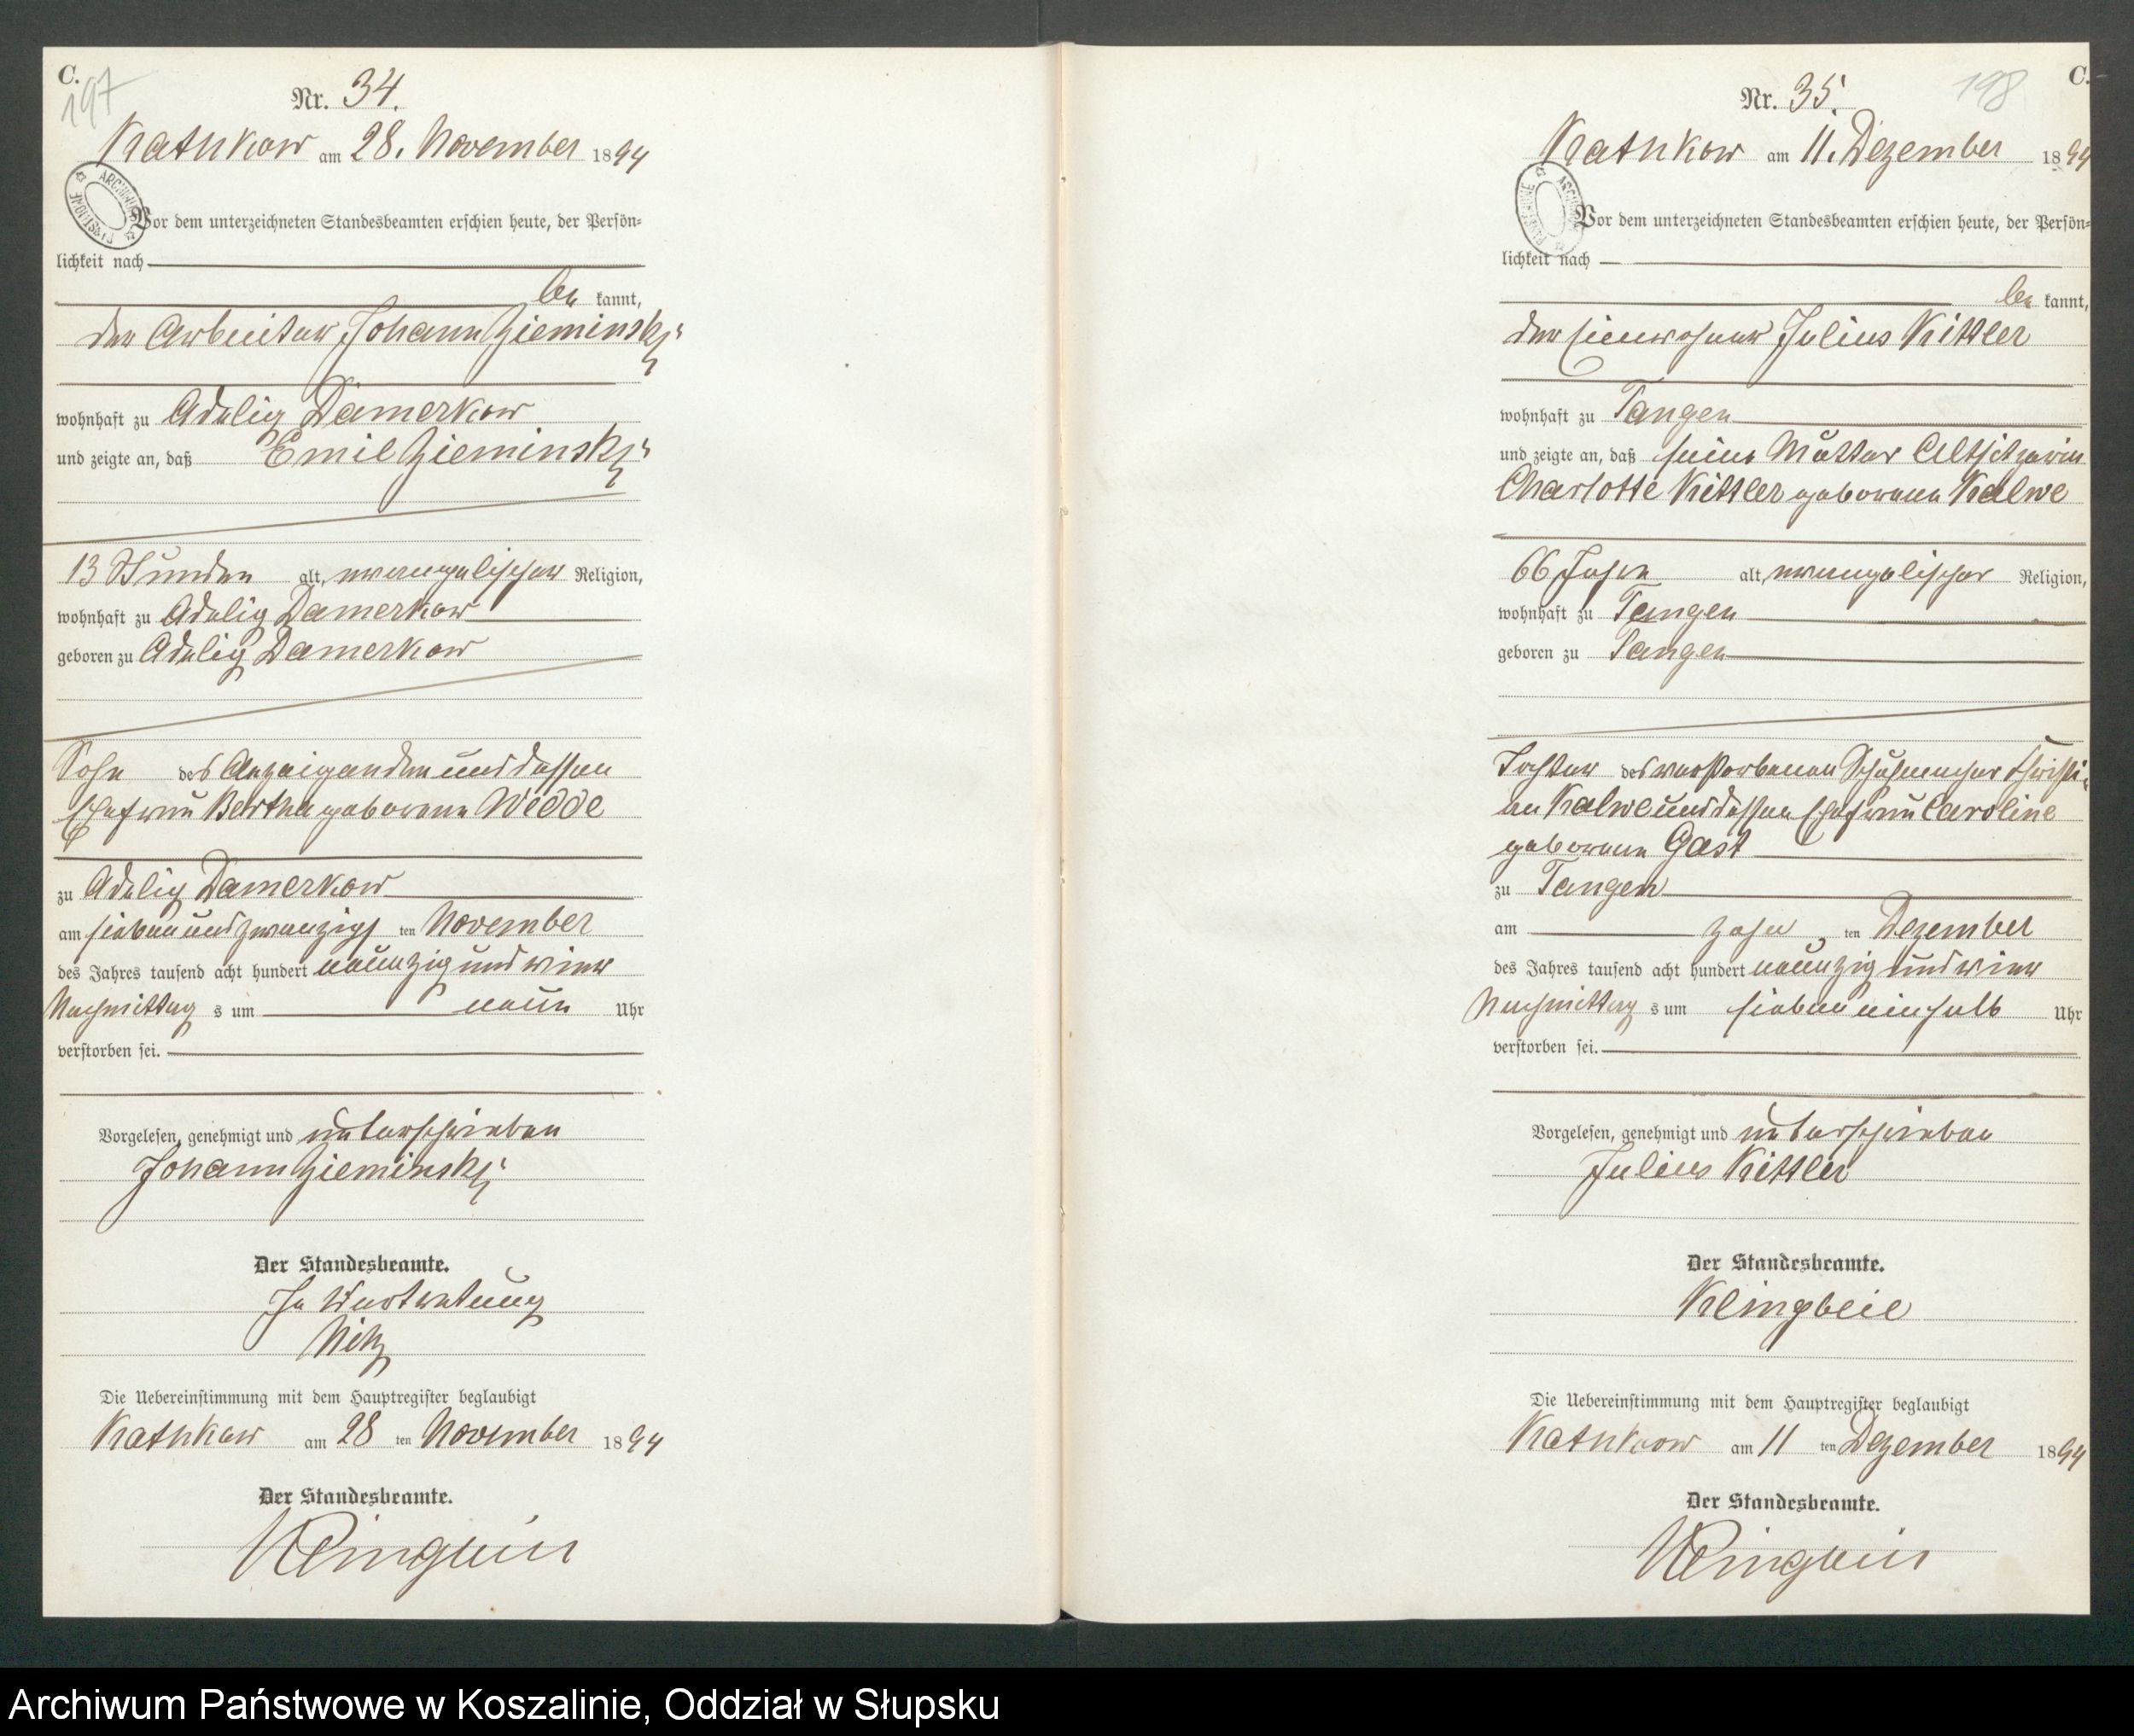 C.
197
Nr. 34.
Kathkow am 28. November 1894
Vor dem unterzeichneten Standesbeamten erschien heute, der Persön-
lichkeit nach
be kannt,
der Arbeiter Johann Zieminski
wohnhaft zu Adelig Damerkow
und zeigte an, daß Emil Zieminski
13 Stunden alt, evangelischer Religion,
wohnhaft zu Adelig Damerkow
geboren zu Adelig Damerkow
Sohn des Anzeigenden und dessen
Ehefrau Bertha geborene Wedde
zu Adelig Damerkow
am sieben und zwanzigs ten November
des Jahres tausend acht hundert neunzig und vier
Nachmittag s um neun Uhr
verstorben sei.
Vorgelesen, genehmigt und unterschrieben
Johann Zieminski
Der Standesbeamte.
In Vertretung
Die Uebereinstimmung mit dem Hauptregister beglaubigt
Kathkow am 28 ten November 1894
Der Standesbeamte.
Klingbeil
C.
198
Nr. 35.
Kathkow am 11. Dezember 1894
Vor dem unterzeichneten Standesbeamten erschien heute, der Persön-
lichkeit nach
be kannt,
der Einwohner Julius Kittler
wohnhaft zu Tangen
und zeigte an, daß seine Mutter Altsitzerin
Charlotte Kittler geborene Kalwe
66 Jahre alt, evangelischer Religion,
wohnhaft zu Tangen
geboren zu Tangen
Tochter des verstorbenen Schuhmacher Christi-
an Kalwe und dessen Ehefrau Caroline
geborene Gast
zu Tangen
am zehn ten Dezember
des Jahres tausend acht hundert neunzig und vier
Nachmittag s um sieben einhalb Uhr
verstorben sei.
Vorgelesen, genehmigt und unterschrieben
Julius Kittler
Der Standesbeamte.
Klingbeil
Die Uebereinstimmung mit dem Hauptregister beglaubigt
Kathkow am 11 ten Dezember 1894
Der Standesbeamte.
Klingbeil
Archiwum Państwowe w Koszalinie, Oddział w Słupsku